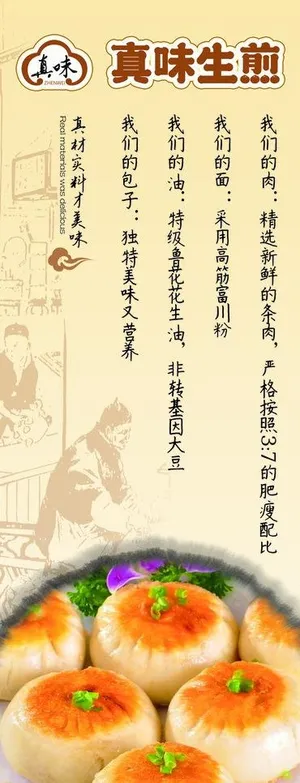 真味
ZHENWEI
真味生煎
我们的肉：精选新鲜的条肉，严格按照3:7的肥瘦配比
我们的面：采用高筋富川粉
我们的油：特级鲁花花生油，非转基因大豆
我们的包子：独特美味又营养
真材实料才美味
Real materials was delicious